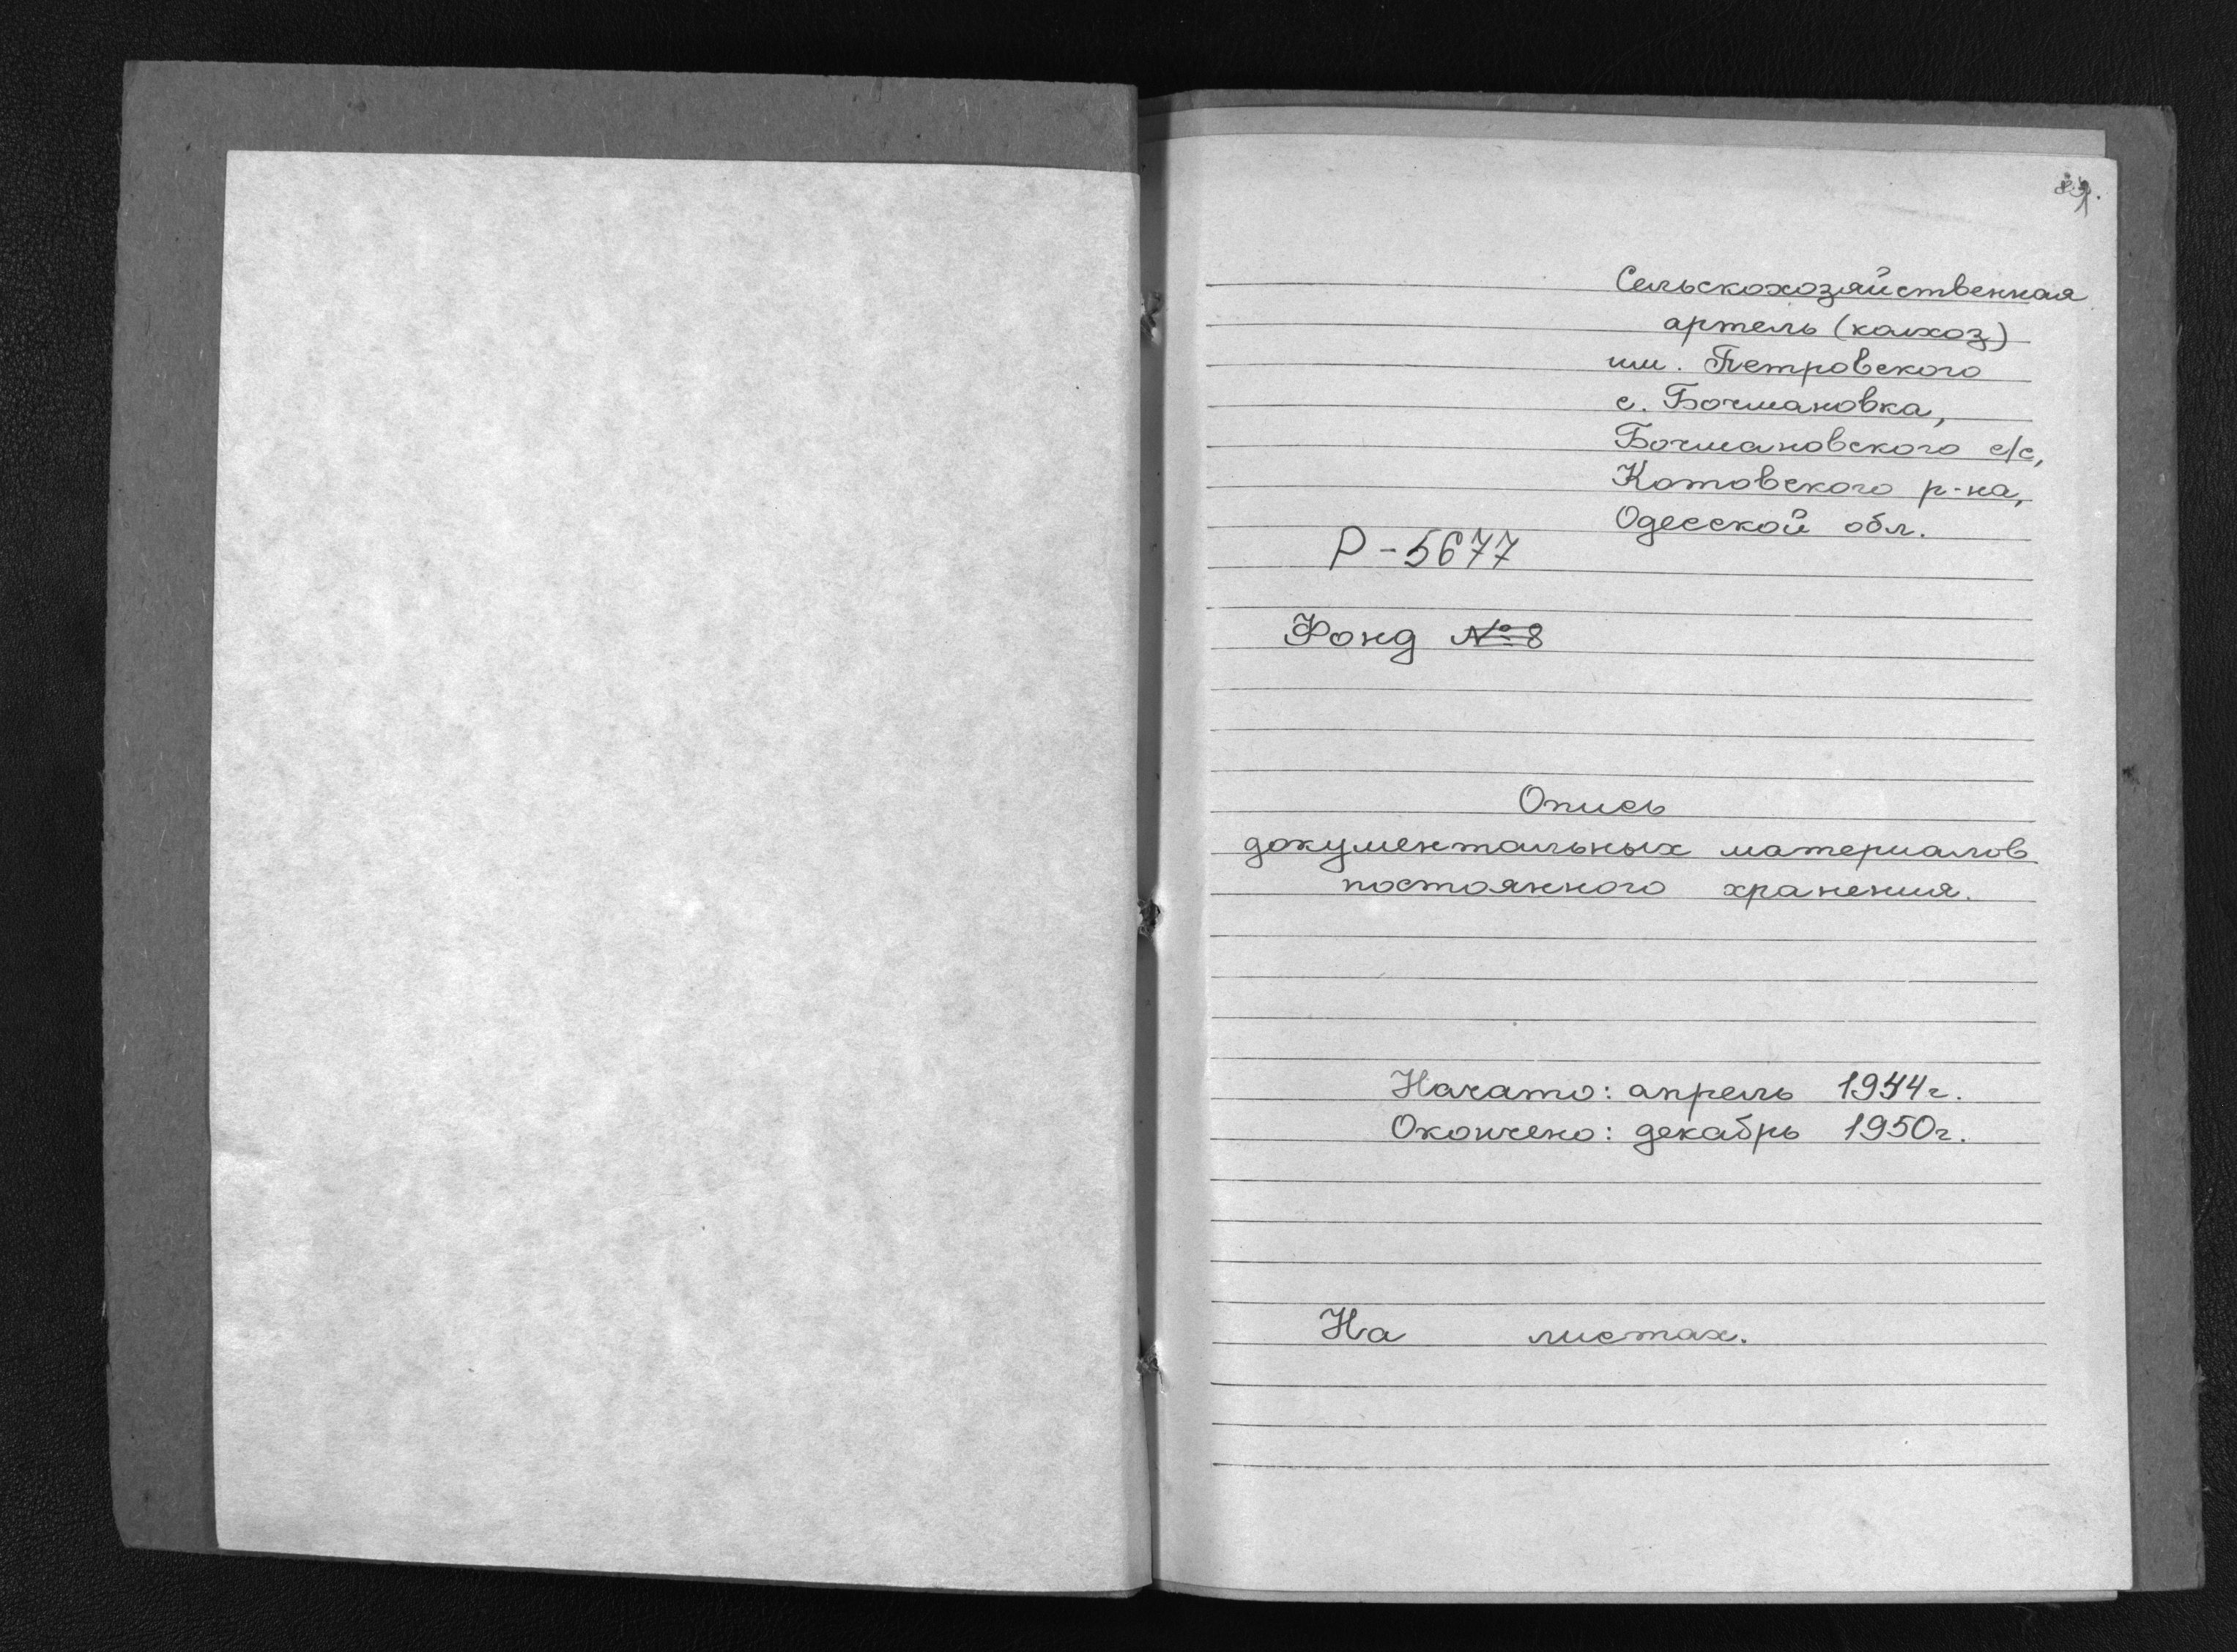 Сельскохозяйственная
артель (колхоз)
им. Петровского
с. Бочмановка,
Бочмановского с/с,
Котовского р-на,
Одесской обл.
Р-5677
Фонд №8
Опись
документальных материалов
постоянного хранения.
Начато: апрель 1944г.
Окончено: декабрь 1950г.
На листах.